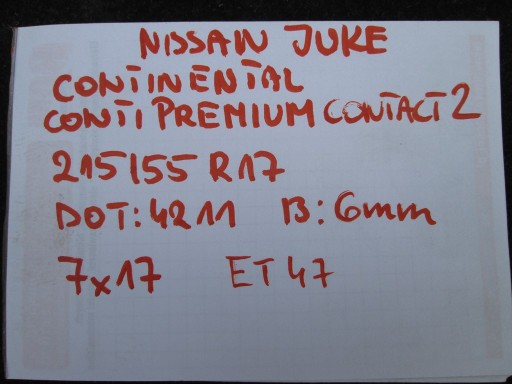 NISSAN JUKE
CONTINENTAL
CONTIPREMIUM CONTACT 2
215/55 R17
DOT: 4211 B: 6mm
7x17 ET 47